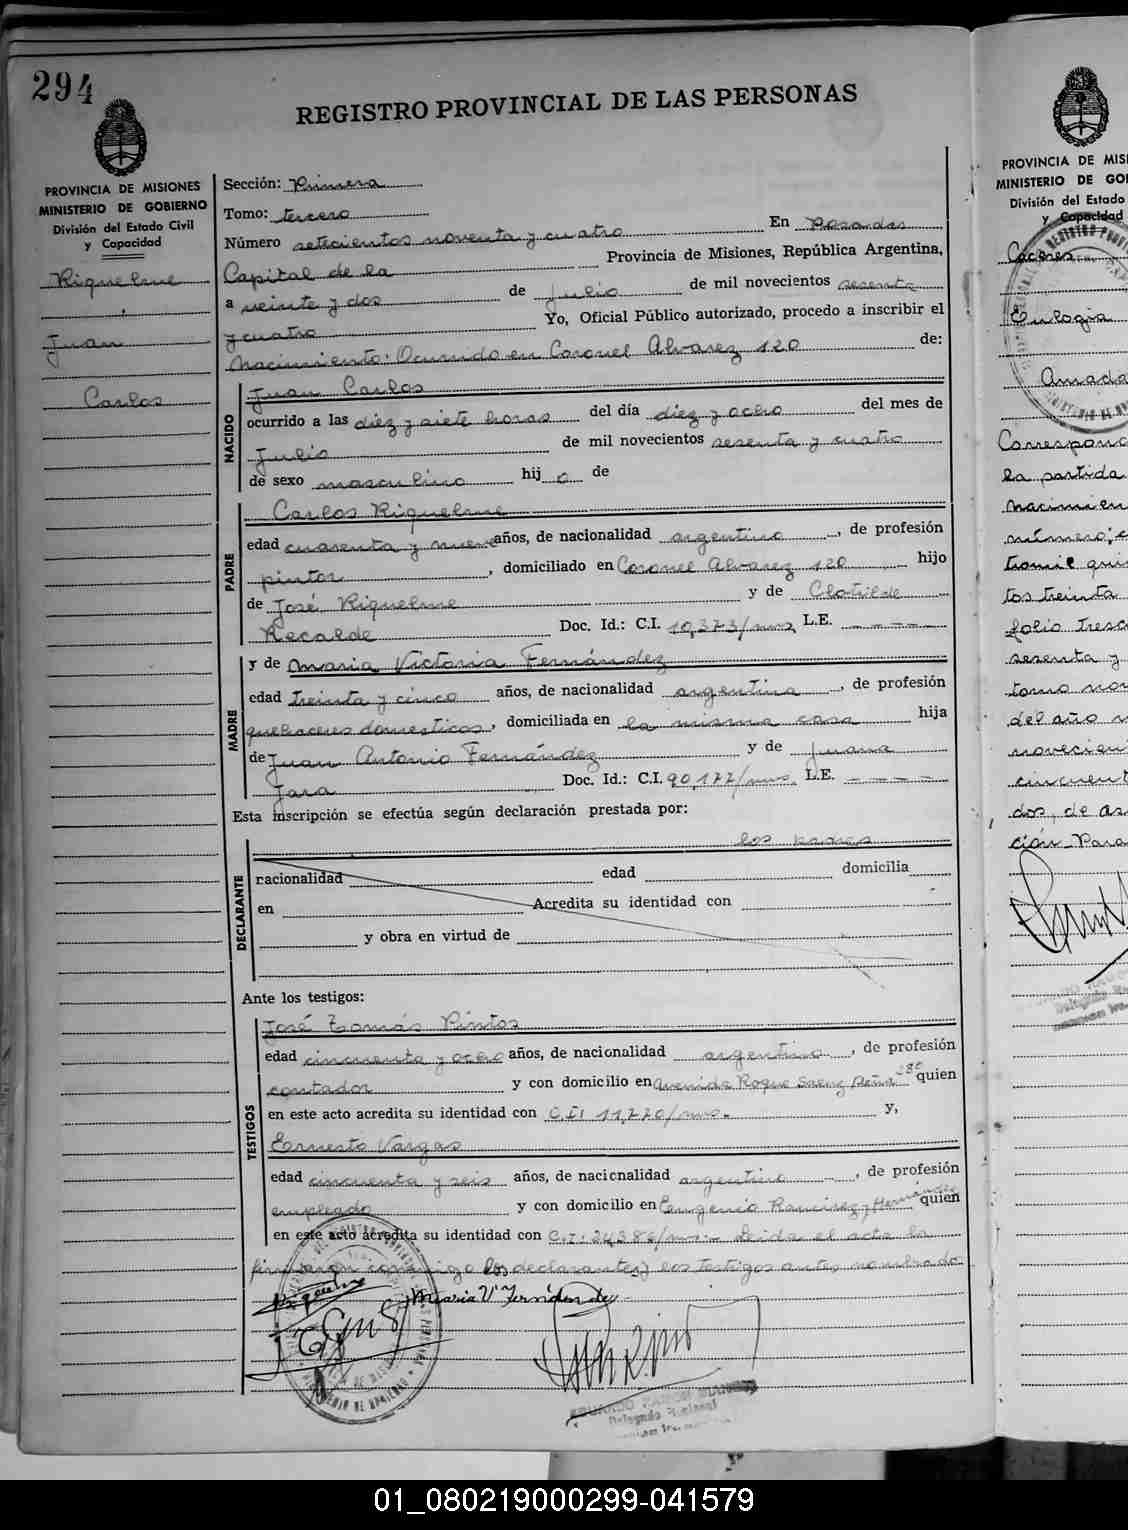 294
REGISTRO PROVINCIAL DE LAS PERSONAS
PROVINCIA DE MISIONES
MINISTERIO DE GOBIERNO
División del Estado Civil
y Capacidad
Riquelme
Juan
Carlos
Sección: Primera
Tomo: tercero
Número setecientos noventa y cuatro En Posadas
Capital de la Provincia de Misiones, República Argentina,
a veinte y dos de julio de mil novecientos sesenta
y cuatro Yo, Oficial Público autorizado, procedo a inscribir el
Nacimiento: Ocurrido en Coronel Alvarez 120 de:
NACIDO
Juan Carlos
ocurrido a las diez y siete horas del día diez y ocho del mes de
Julio de mil novecientos sesenta y cuatro
de sexo masculino hij o de
PADRE
Carlos Riquelme
edad cuarenta y nueve años, de nacionalidad argentino, de profesión
pintor, domiciliado en Coronel Alvarez 120 hijo
de José Riquelme y de Clotilde
Recalde Doc. Id.: C.I. 10,373/mns, L.E. _ _ _ _ _
MADRE
y de Maria Victoria Fernández
edad treinta y cinco años, de nacionalidad argentina, de profesión
quehaceres domesticos, domiciliada en la misma casa hija
de Juan Antonio Fernández y de Juana
Jara Doc. Id.: C.I. 90,177/mns. L.E. _ _ _ _ _
Esta inscripción se efectúa según declaración prestada por:
DECLARANTE
los padres
racionalidad edad domicilia
en Acredita su identidad con
y obra en virtud de
Ante los testigos:
TESTIGOS
José Tomás Pintos
edad cincuenta y ocho años, de nacionalidad argentino, de profesión
contador y con domicilio en Avenida Roque Saenz Peña 280 quien
en este acto acredita su identidad con C.I: 11,770/mns. y,
Ernesto Vargas
edad cincuenta y seis años, de nacionalidad argentino, de profesión
empleado y con domicilio en Eugenio Ramirez y Hernández quien
en este acto acredita su identidad con C.I: 24,386/mns.- Leida el acta la
firmaron conmigo los declarantes y los testigos antes nombrado
Maria V Fernández
Delegado Regional
PROVINCIA DE MIS
MINISTERIO DE GO
División del Estado
y Capacidad
Caceres
Eulogia
Amada
Correspond
la partida
nacimien
número:
tos treinta
folio tresc
sesenta y
tomo nov
del año m
novecien
cincuent
dos, de as
ción Para
01_080219000299-041579